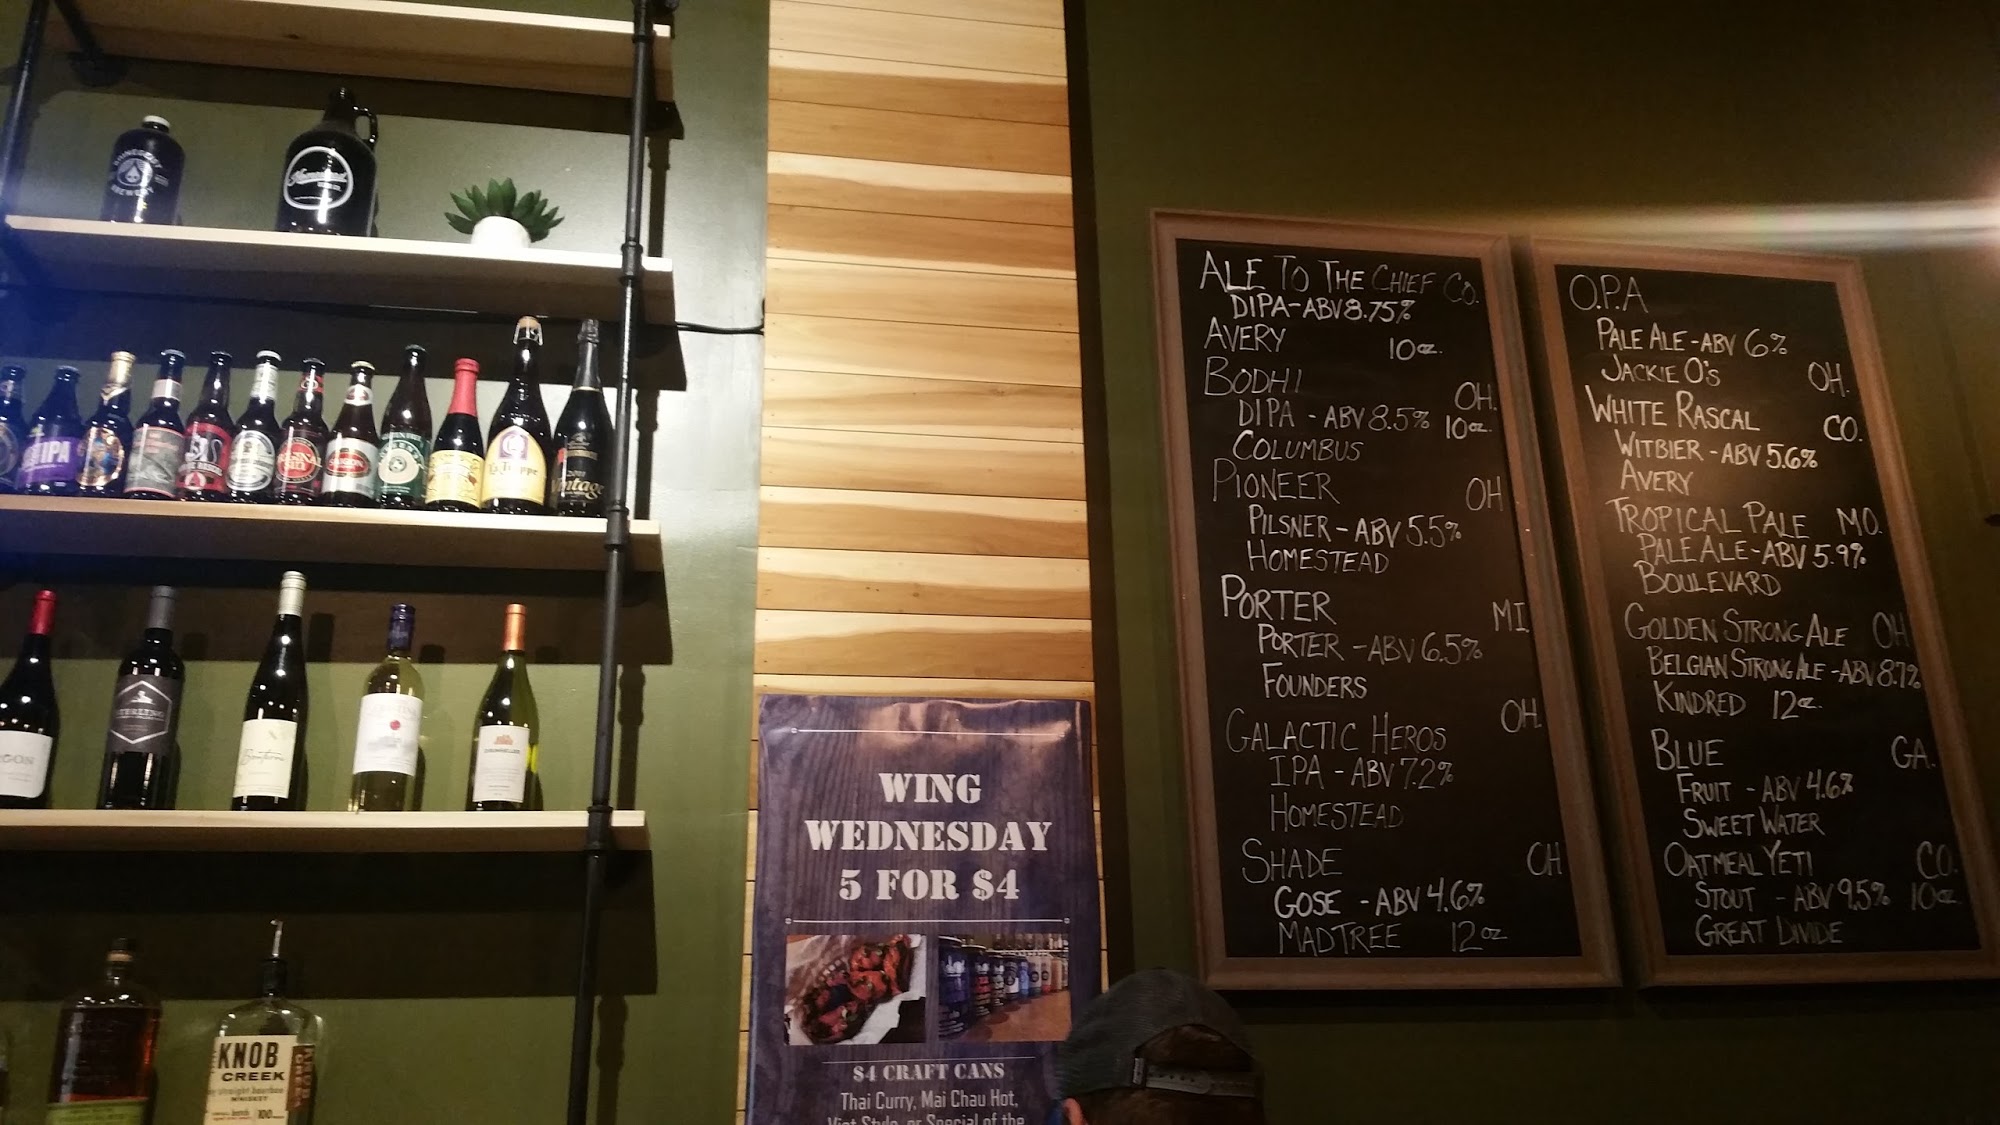 RHINEGEIST
BREWERY
Homestead
IPA
La Trappe
Vintage
STERLING
KNOB
CREEK
straight bourbon
WHISKEY
100
WING
WEDNESDAY
5 FOR $4
$4 CRAFT CANS
Thai Curry, Mai Chau Hot,
Viet Style, or Special of the
ALE TO THE CHIEF CO.
DIPA-ABV 8.75%
AVERY 10oz.
BODHI OH.
DIPA - ABV 8.5% 10oz.
COLUMBUS
PIONEER OH
PILSNER - ABV 5.5%
HOMESTEAD
PORTER MI.
PORTER - ABV 6.5%
FOUNDERS
GALACTIC HEROS OH.
IPA - ABV 7.2%
HOMESTEAD
SHADE OH
GOSE - ABV 4.6%
MADTREE 12oz
O.P.A
PALE ALE - ABV 6%
JACKIE O'S OH.
WHITE RASCAL CO.
WITBIER - ABV 5.6%
AVERY
TROPICAL PALE MO.
PALE ALE - ABV 5.9%
BOULEVARD
GOLDEN STRONG ALE OH
BELGIAN STRONG ALE - ABV 8.7%
KINDRED 12oz.
BLUE GA.
FRUIT - ABV 4.6%
SWEET WATER
OATMEAL YETI CO.
STOUT - ABV 9.5% 10oz.
GREAT DIVIDE